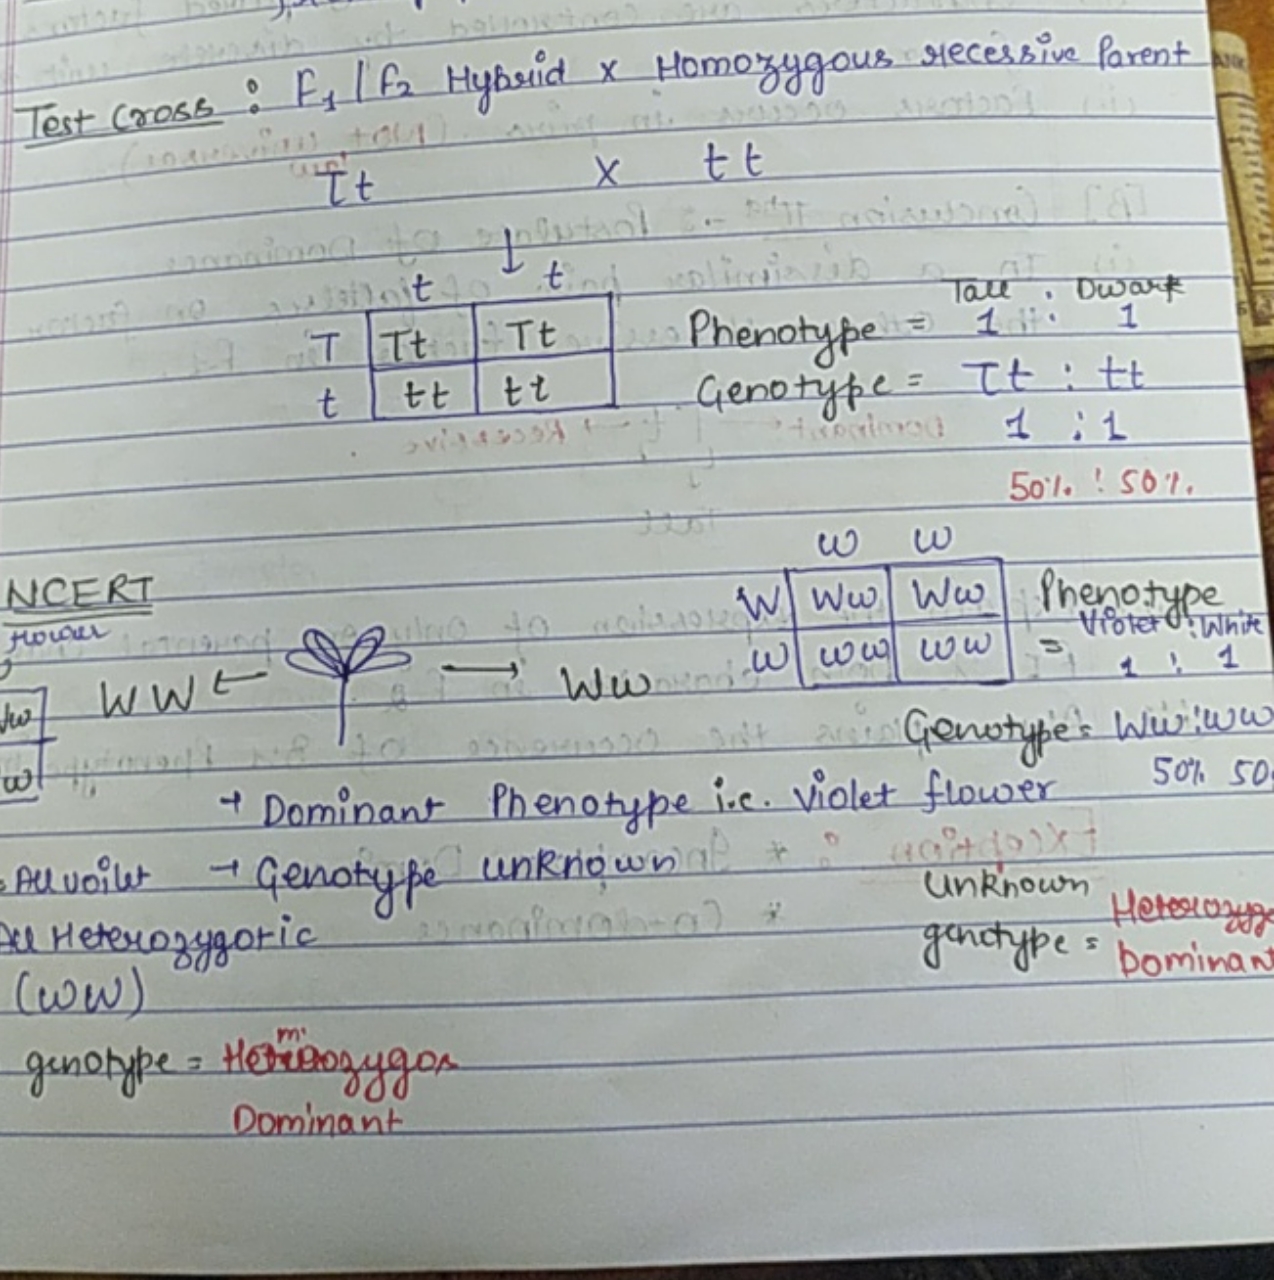 Test Cross : F1 / F2 Hybrid x Homozygous recessive Parent
Tt x tt
t t
T Tt Tt
t tt tt
Tall : Dwarf
Phenotype = 1 : 1
Genotype = Tt : tt
1 : 1
50% : 50%
NCERT
flower
WW ← → Ww
w w
W Ww Ww
w ww ww
Phenotype
Violet : White
= 1 : 1
Genotype = Ww : ww
50% 50
→ Dominant Phenotype i.e. Violet flower
All voilet → Genotype unknown
All Heterozygotic
(Ww)
unknown
genotype = Heterozyg
Dominant
genotype = Homozygos
Dominant